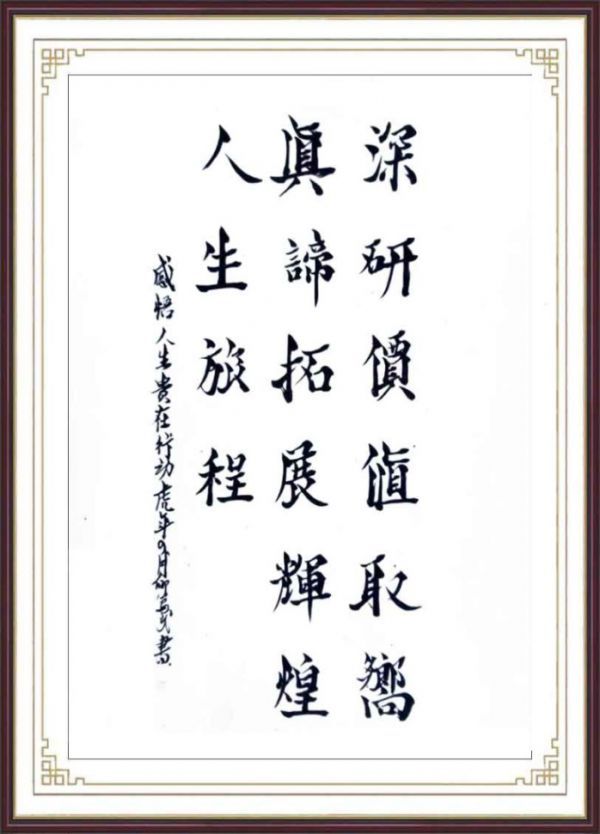 深研價值取嚮
眞諦拓展輝煌
人生旅程
感悟人生贵在行动虎年月書